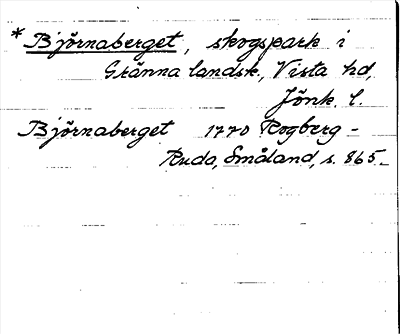 * Björnaberget, skogspark i
Gränna landsk., Vista hd,
Jönk. l.
Björnaberget 1770 Rogberg -
Ruda, Småland, s. 865.